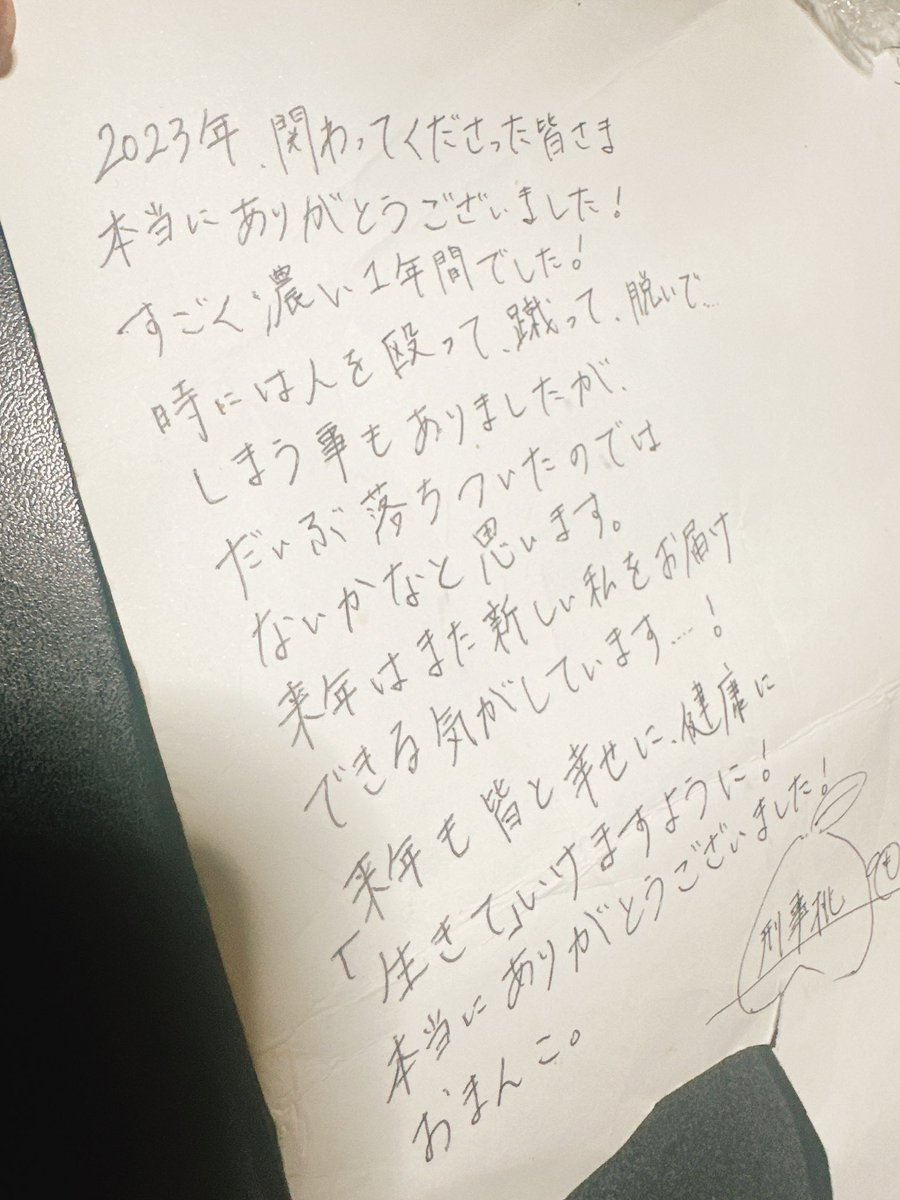 2023年、関わってくださった皆さま
本当にありがとうございました!
すごく濃い1年間でした!
時には人を殴って、蹴って、脱いで…
しまう事もありましたが、
だいぶ落ちついたのでは
ないかなと思います。
来年はまた新しい私をお届け
できる気がしています……!
来年も皆と幸せに、健康に
「生きて」いけますように!
本当にありがとうございました!
おまんこ。
刑事桃